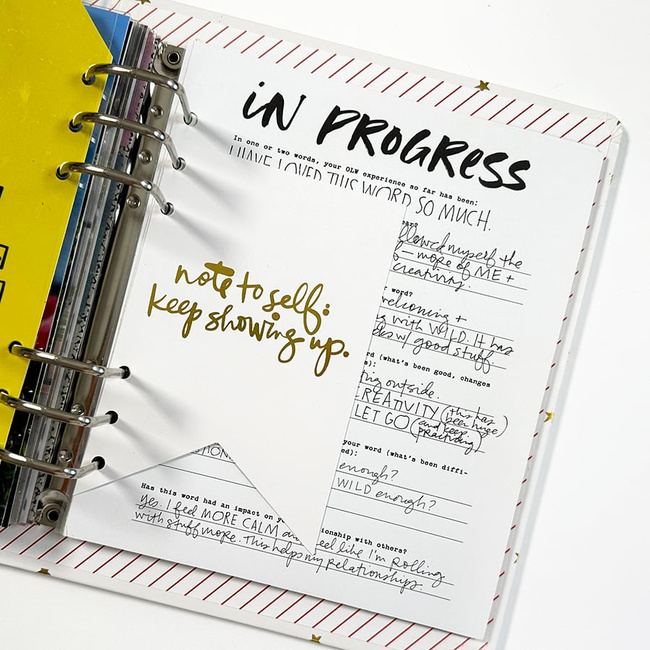 iN PROGRESS
In one or two words, your OLW experience so far has been:
I HAVE LOVED THIS WORD SO MUCH.
note to self:
keep showing up.
myself the
more of ME +
creativity.
word?
welcoming +
with WILD. It has
w/ good stuff.
(what's been good, changes
outside.
CREATIVITY (this has been huge)
LET GO (and keep practicing)
your word (what's been diffi-
enough?
WILD enough?
Has this word had an impact on
ionship with others?
yes. I feel MORE CALM
feel like I'm Rolling
with stuff more. This helps my relationships.